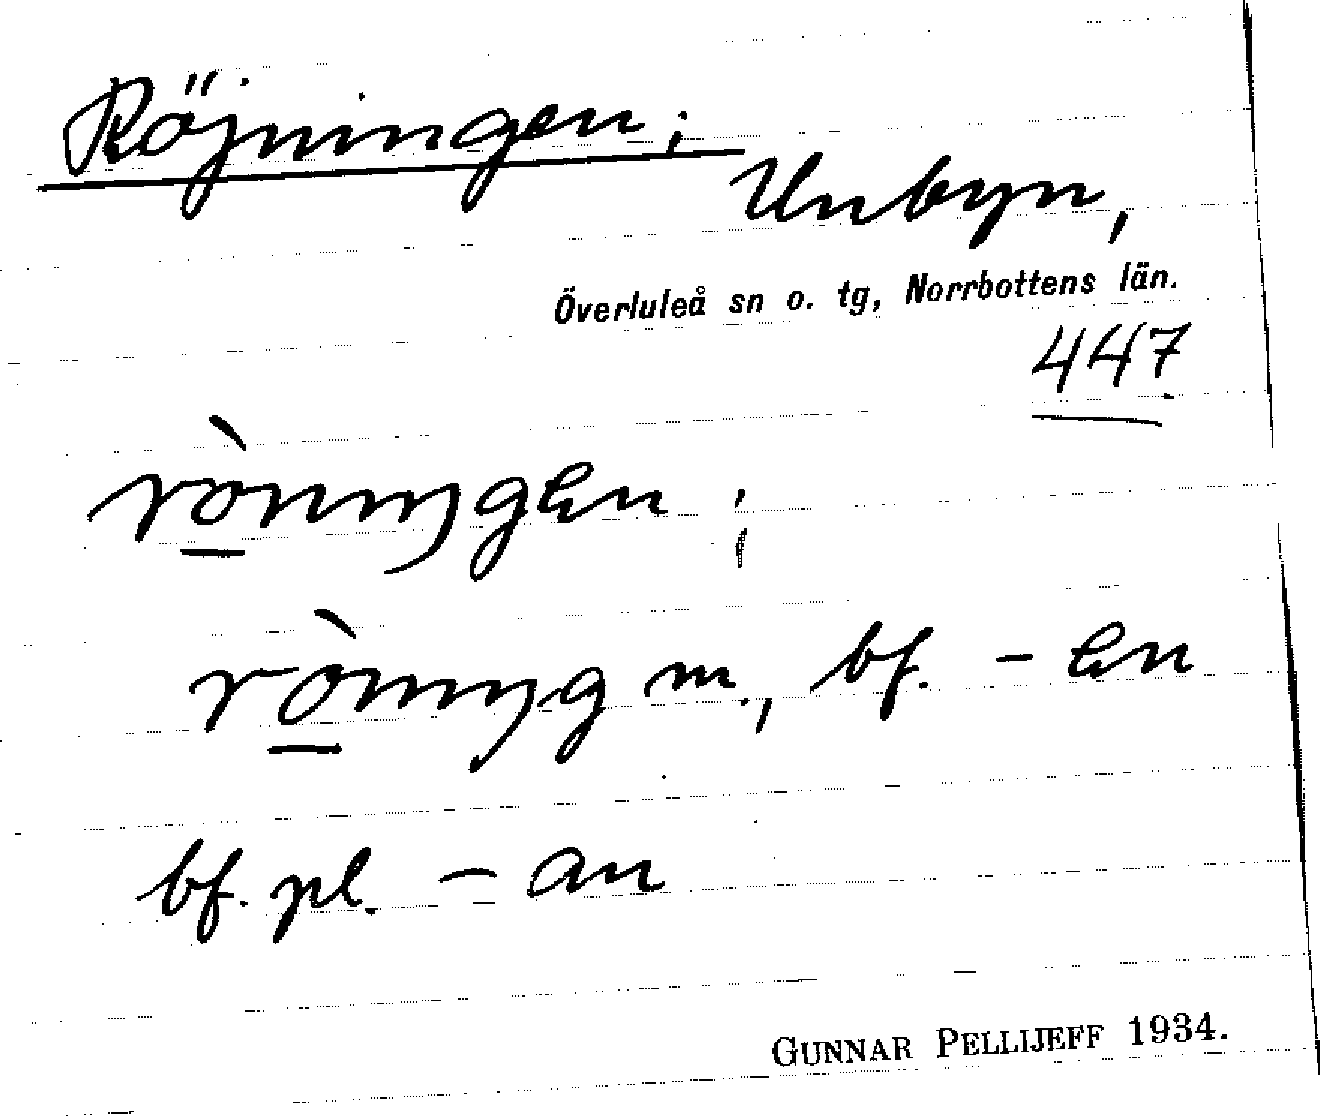 Röjningen;
Unbyn,
Överluleå sn o. tg, Norrbottens län.
447
rò̲nıŋgɛn ;
rò̲nıŋg m., bf. - ɛn
bf. pl. - an
GUNNAR PELLIJEFF 1934.